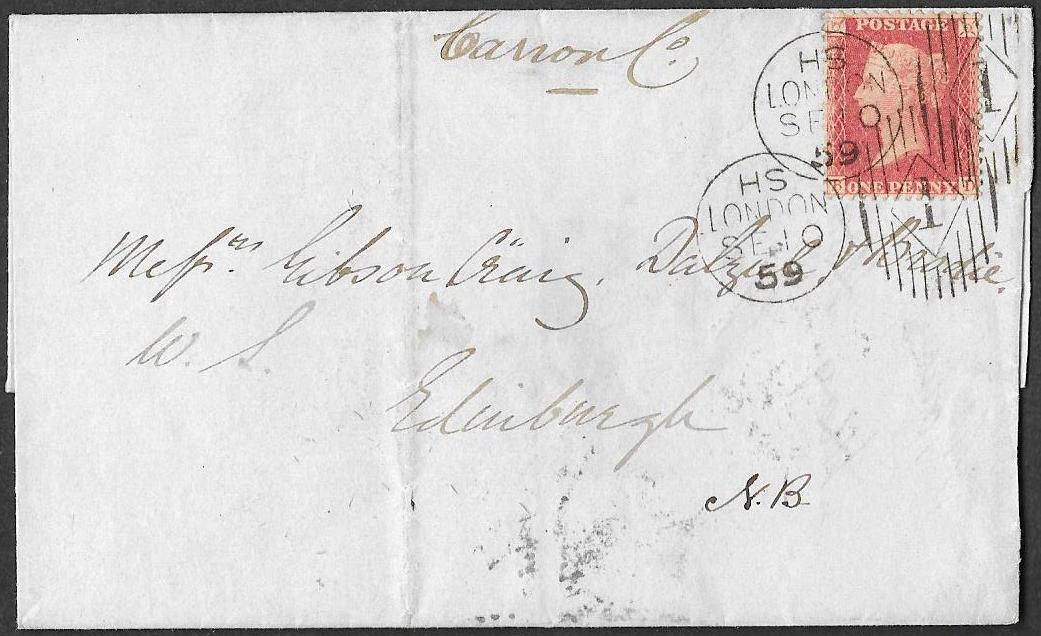 Carron Co.
POSTAGE
ONE PENNY
D
HS
LONDON
SE 10
59
1
HS
LONDON
SE 10
59
1
Messrs. Gibson Craig, Dalziel & Brodie.
W. S.
Edinburgh
N.B.